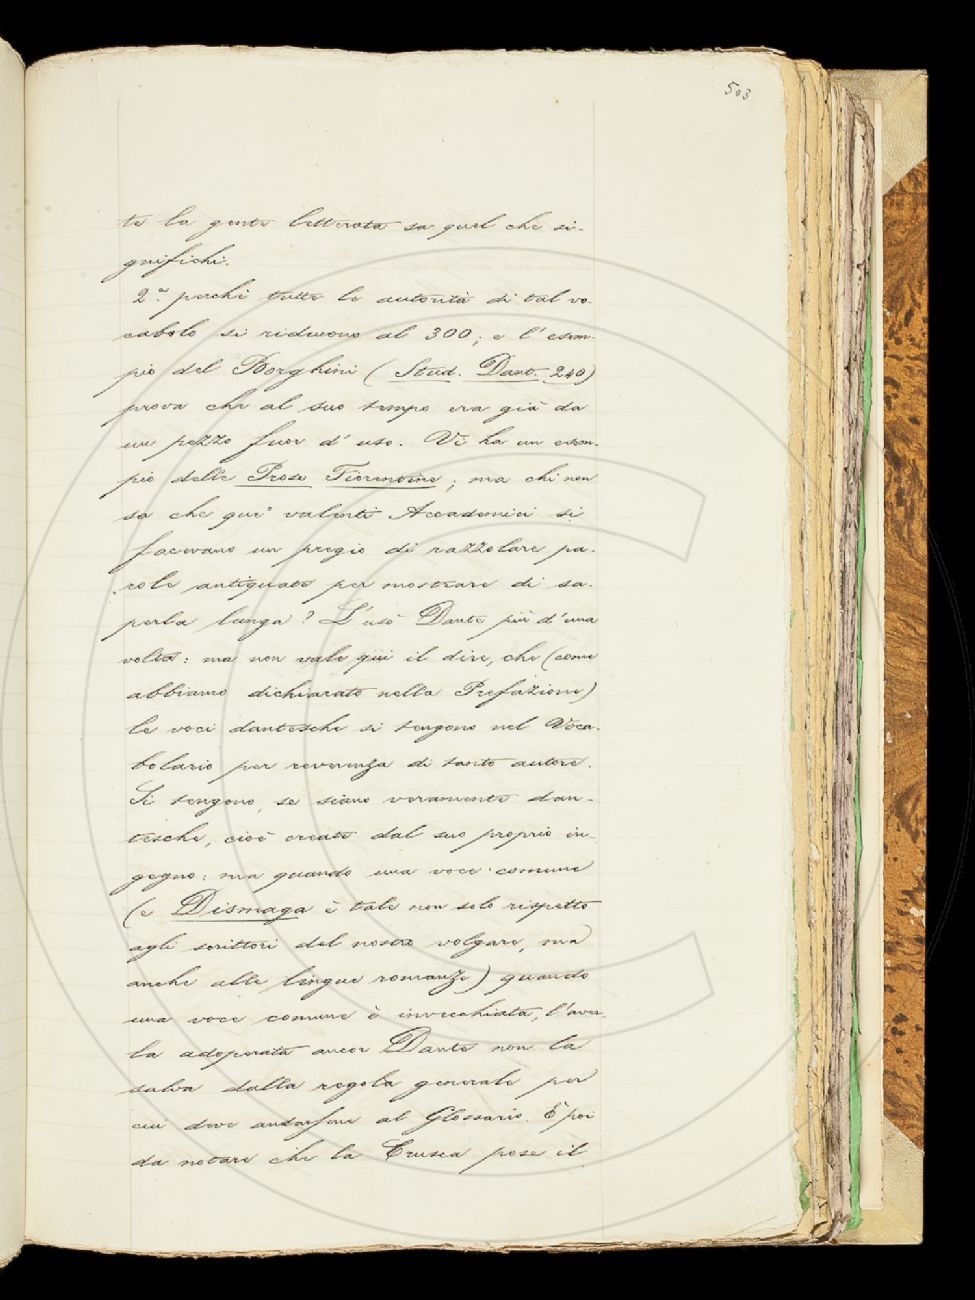 503
te la gente letterata sa quel che si-
gnifichi.
2.a perchè tutte le autorità di tal vo-
cabolo si riducono al 300; e l'esem-
pio del Borghini (Stud. Dant. 240)
prova che al suo tempo era già da
un pezzo fuor d'uso. Vi ha un esem-
pio delle Prose Fiorentine; ma chi non
sa che que' valenti Accademici si
facevano un pregio di razzolare pa-
role antiquate per mostrare di sa-
perla lunga? L'usò Dante più d'una
volta: ma non vale qui il dire, che (come
abbiamo dichiarato nella Prefazione)
le voci dantesche si tengono nel Voca-
bolario per reverenza di tanto autore.
Si tengono, se siano veramente dan-
tesche, cioè create dal suo proprio in-
gegno: ma quando una voce comune
(e Dismaga è tale non solo rispetto
agli scrittori del nostro volgare, ma
anche alle lingue romanze) quando
una voce comune è invecchiata, l'aver-
la adoperata ancor Dante non la
salva dalla regola generale per
cui deve andarsene al Glossario. E poi
da notare che la Crusca pose il